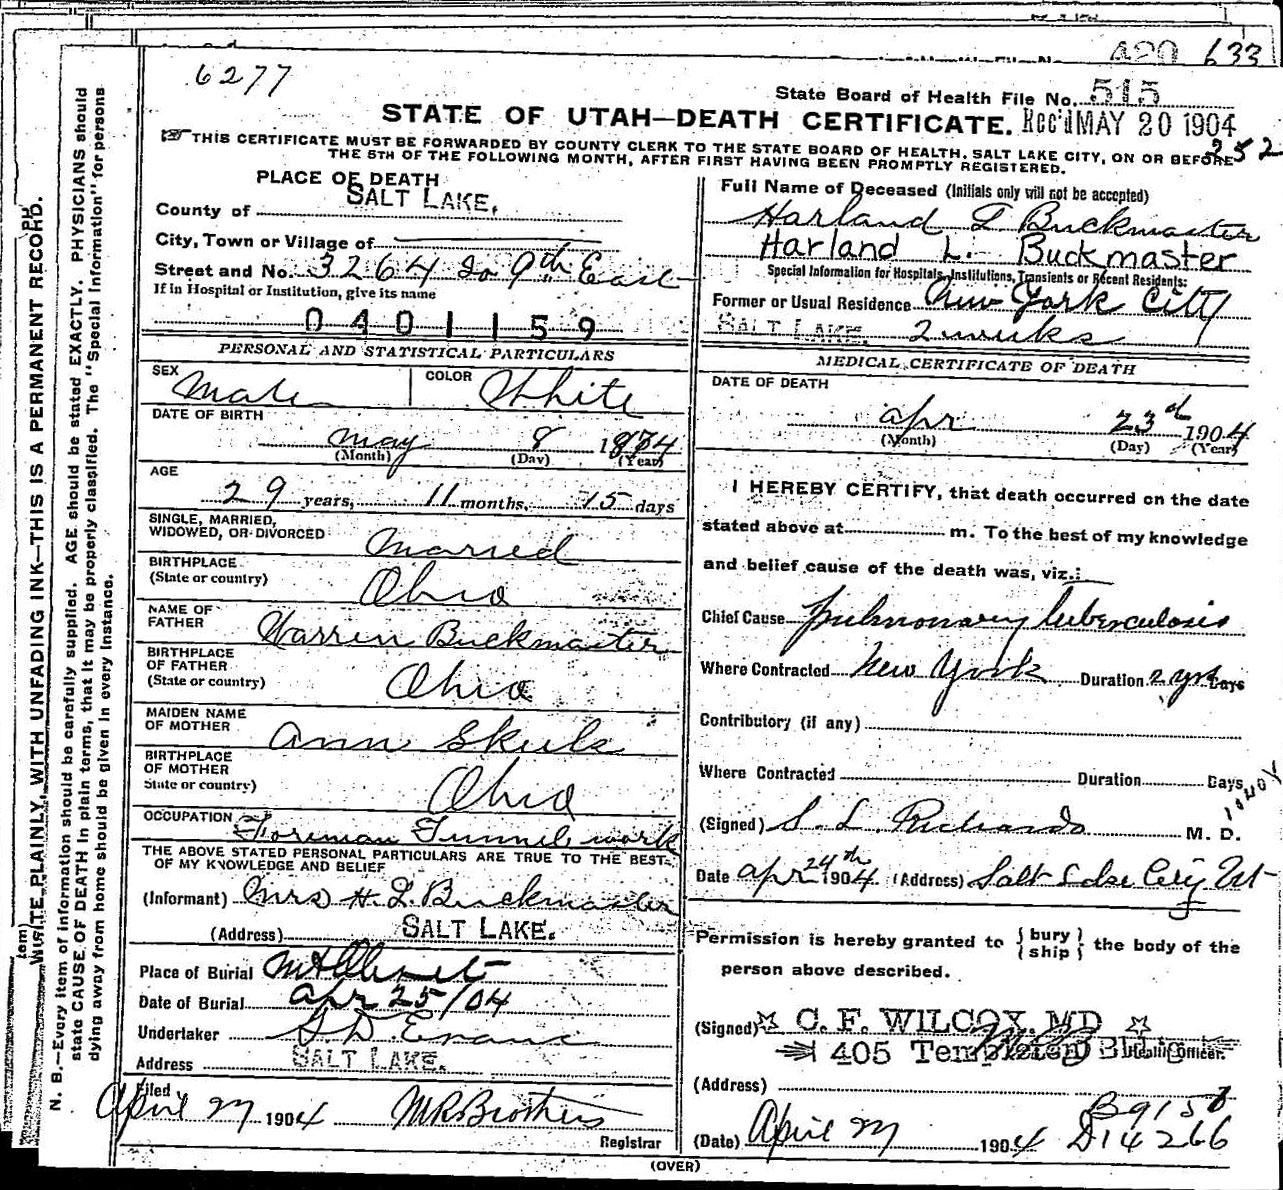 420 633
6277
State Board of Health File No. 515
STATE OF UTAH—DEATH CERTIFICATE. Rec'd MAY 20 1904
THIS CERTIFICATE MUST BE FORWARDED BY COUNTY CLERK TO THE STATE BOARD OF HEALTH, SALT LAKE CITY, ON OR BEFORE
252
THE 5TH OF THE FOLLOWING MONTH, AFTER FIRST HAVING BEEN PROMPTLY REGISTERED.
WRITE PLAINLY, WITH UNFADING INK—THIS IS A PERMANENT RECORD.
N. B.—Every item of information should be carefully supplied. AGE should be stated EXACTLY. PHYSICIANS should
state CAUSE OF DEATH in plain terms, that it may be properly classified. The "Special Information" for persons
dying away from home should be given in every instance.
PLACE OF DEATH
County of SALT LAKE.
City, Town or Village of
Street and No. 3264 So 9th East
If in Hospital or Institution, give its name
0401159
PERSONAL AND STATISTICAL PARTICULARS
SEX Male COLOR White
DATE OF BIRTH
May 8 1874
(Month) (Day) (Year)
AGE
29 years, 11 months, 15 days
SINGLE, MARRIED,
WIDOWED, OR DIVORCED Married
BIRTHPLACE
(State or country) Ohio
NAME OF
FATHER Warren Buckmaster
BIRTHPLACE
OF FATHER
(State or country) Ohio
MAIDEN NAME
OF MOTHER Ann
BIRTHPLACE
OF MOTHER
State or country) Ohio
OCCUPATION Foreman Tunnel work
THE ABOVE STATED PERSONAL PARTICULARS ARE TRUE TO THE BEST
OF MY KNOWLEDGE AND BELIEF
(Informant) Mrs H. L. Buckmaster
(Address) SALT LAKE.
Place of Burial Mt Olivet
Date of Burial Apr 25/04
Undertaker S. D. Evans
Address SALT LAKE.
Filed
April 27 1904
Registrar
Full Name of Deceased (Initials only will not be accepted)
Harland L Buckmaster
Harland L. Buckmaster
Special Information for Hospitals, Institutions, Transients or Recent Residents:
Former or Usual Residence New York City
SALT LAKE. 2 weeks
MEDICAL CERTIFICATE OF DEATH
DATE OF DEATH
Apr 23d 1904
(Month) (Day) (Year)
I HEREBY CERTIFY, that death occurred on the date
stated above at m. To the best of my knowledge
and belief cause of the death was, viz.:
Chief Cause pulmonary tuberculosis
Where Contracted New York Duration 2 yrs Days
Contributory (if any)
Where Contracted Duration Days
(Signed) S. L. Richards M. D.
Date Apr 24th 1904 (Address) Salt Lake City Ut
Permission is hereby granted to { bury
ship } the body of the
person above described.
(Signed) C. F. WILCOX, MD
405 Templeton Bldg Health Officer.
(Address)
B9150
(Date) April 27 1904 D14266
(OVER)